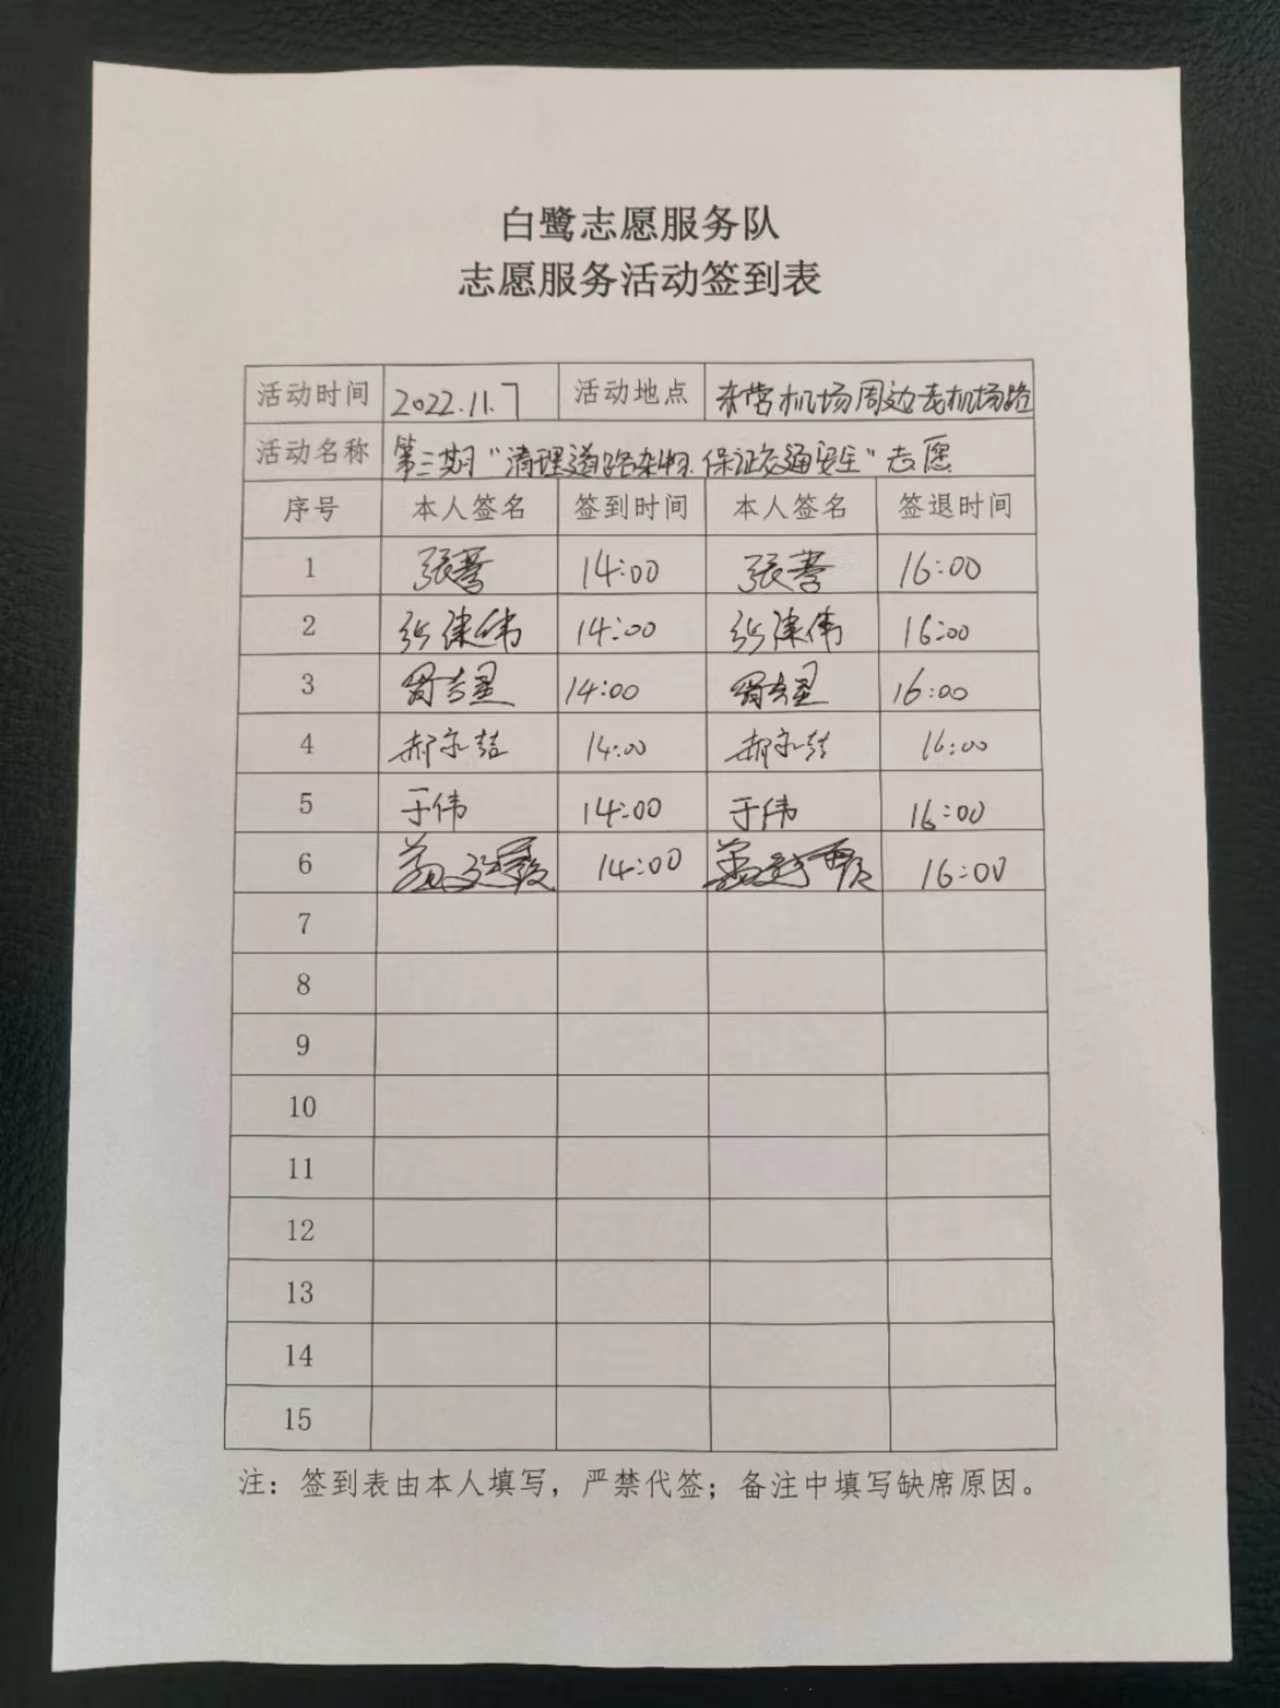 白鹭志愿服务队
志愿服务活动签到表
活动时间 2022.11.7 活动地点 东营机场周边老机场路
活动名称 第三期"清理道路杂物.保证交通安全"志愿
序号 本人签名 签到时间 本人签名 签退时间
1 张蕾 14:00 张蕾 16:00
2 张津伟 14:00 张津伟 16:00
3 14:00 16:00
4 郝永喆 14:00 郝永喆 16:00
5 于伟 14:00 于伟 16:00
6 14:00 16:00
7
8
9
10
11
12
13
14
15
注：签到表由本人填写，严禁代签；备注中填写缺席原因。